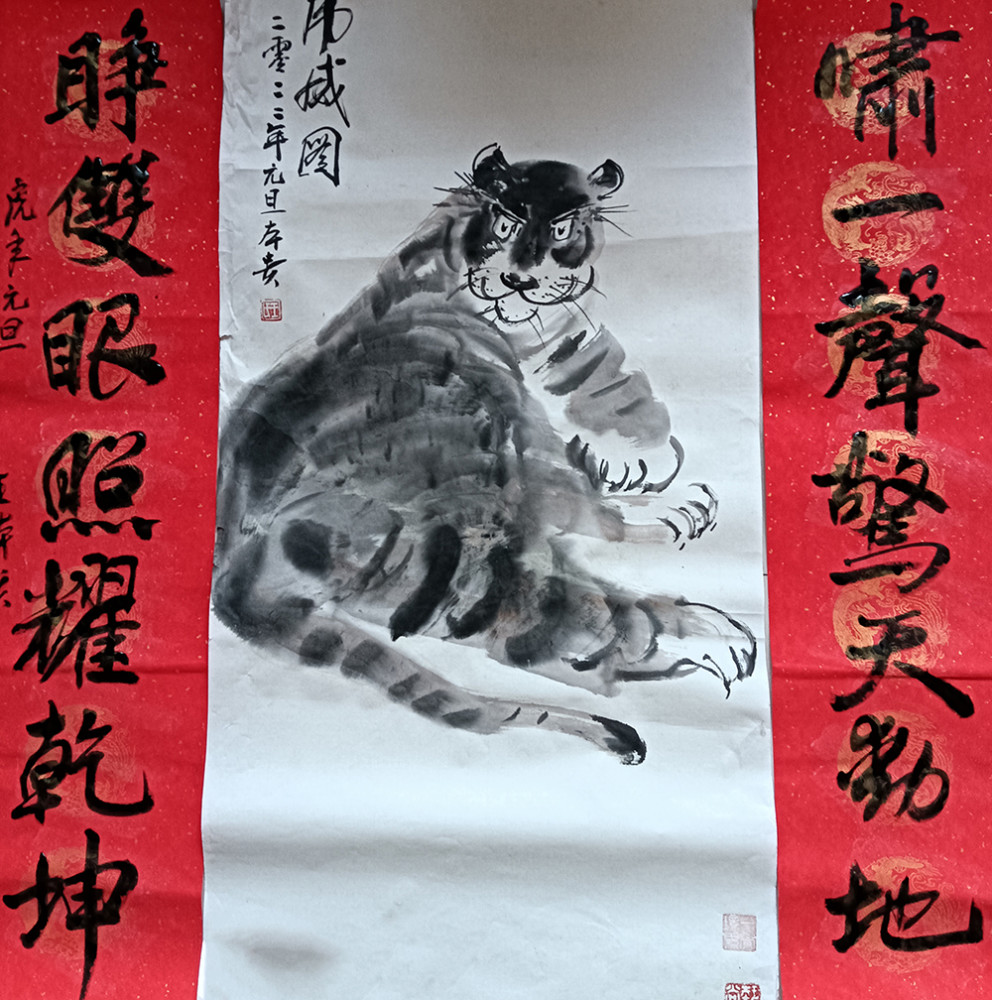 啸一聲驚天動地
虎威图
二零二二年元旦本贵
睁雙眼照耀乾坤
虎年元旦